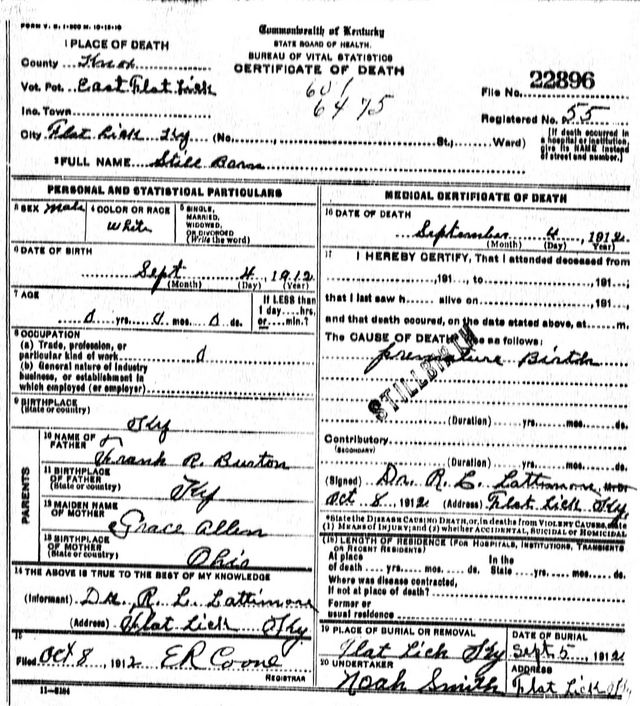 FORM V. S. 1-500 M. 10-18-10
Commonwealth of Kentucky
STATE BOARD OF HEALTH.
BUREAU OF VITAL STATISTICS
CERTIFICATE OF DEATH
1 PLACE OF DEATH
County Knox
Vot. Pct. East Flat Lick
Inc. Town
City Flat Lick Ky (No. St.; Ward)
601
6475
File No. 22896
Registered No. 55
[If death occurred in a hospital or institution, give its NAME instead of street and number.]
2 FULL NAME Still Born
PERSONAL AND STATISTICAL PARTICULARS
3 SEX Male
4 COLOR OR RACE White
5 SINGLE, MARRIED, WIDOWED, OR DIVORCED (Write the word)
6 DATE OF BIRTH
Sept 4 1912
(Month) (Day) (Year)
7 AGE
0 yrs. 0 mos. 0 ds.
If LESS than 1 day....hrs. or....min.?
8 OCCUPATION
(a) Trade, profession, or particular kind of work
(b) General nature of industry business, or establishment in which employed (or employer)
9 BIRTHPLACE
(State or country) Ky
PARENTS
10 NAME OF FATHER Frank R. Burton
11 BIRTHPLACE OF FATHER (State or country) Ky
12 MAIDEN NAME OF MOTHER Grace Allen
13 BIRTHPLACE OF MOTHER (State or country) Ohio
14 THE ABOVE IS TRUE TO THE BEST OF MY KNOWLEDGE
(Informant) Dr. R. L. Lattimore
(Address) Flat Lick Ky
15
Filed Oct 8, 1912 E R Coone
REGISTRAR
11-5184
MEDICAL CERTIFICATE OF DEATH
16 DATE OF DEATH
September 4, 1912
(Month) (Day) (Year)
17 I HEREBY CERTIFY, That I attended deceased from
, 191..., to , 191...,
that I last saw h alive on , 191...,
and that death occured, on the date stated above, at m.
The CAUSE OF DEATH was as follows:
premature Birth
STILLBIRTH
(Duration) yrs. mos. ds.
Contributory
(SECONDARY)
(Duration) yrs. mos. ds.
(Signed) Dr. R. L. Lattimore
Oct 8, 1912 (Address) Flat Lick Ky
*State the DISEASE CAUSING DEATH, or, in deaths from VIOLENT CAUSES, state
(1) MEANS OF INJURY; and (2) whether ACCIDENTAL, SUICIDAL or HOMICIDAL
18 LENGTH OF RESIDENCE (FOR HOSPITALS, INSTITUTIONS, TRANSIENTS OR RECENT RESIDENTS)
At place of death yrs. mos. ds. In the State yrs. mos. ds.
Where was disease contracted, If not at place of death?
Former or usual residence
19 PLACE OF BURIAL OR REMOVAL
Flat Lick Ky
DATE OF BURIAL
Sept. 5, 1912
20 UNDERTAKER
Noah Smith
ADDRESS
Flat Lick Ky